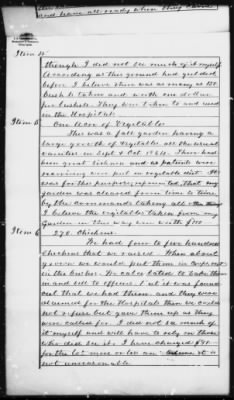 and have all ready when they
Item 4
though I did not see much of it myself
According as this ground had yielded
before I believe there was as many as 150
bush to taken and worth one dollar
per bushels. They were taken to and used
in the Hospitals
Item 5
One Acre of Vegetables
This was a fall garden having a
large growth of Vegetable all the usual
varieties in Sept & Oct 1864. There had
been great sickness and as patients were
were put in vegetable diet
was for the purpose, my
garden was cleaned from time to time
by the commands taking all
I believe the vegetables taken from my
Garden in this way were worth $100
Item 6
270. Chickens.
We had four to five hundred
Chickens that we raised. When about
grown we would put them in
in the bushes. We calculated to take them
and sell to officers. But it was found
out that we had them and they were
demanded for the Hospitals then we could
not refuse but gave them up as they
were called for. I did not see much of
it myself and will have to rely on those
who did see it. I have charged
for the lot more or less
not unreasonable